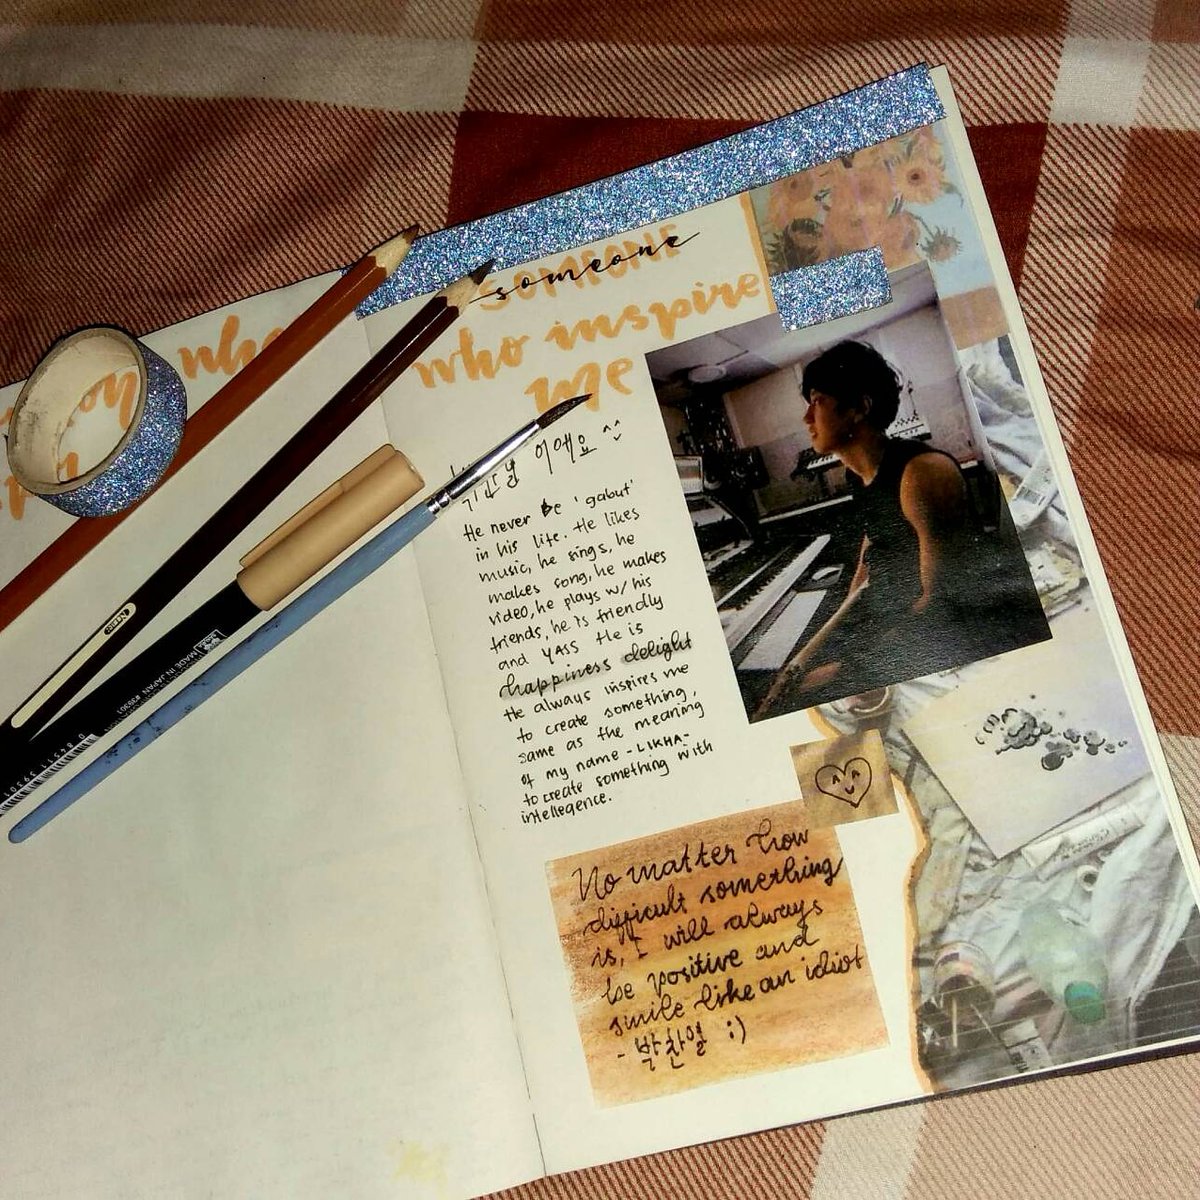 someone
SOMEONE
who inspire
me
이에요 ^^
He never be 'gabut'
in his life. He likes
music, he sings, he
makes song, he makes
video, he plays w/ his
friends, he is friendly
and YASS He is
happiness delight
He always inspires me
to create something,
same as the meaning
of my name -LIKHA-
to create something with
intellegence.
No matter how
difficult something
is, I will always
be positive and
smile like an idiot
- 박찬열 :)
MADE IN JAPAN #39301